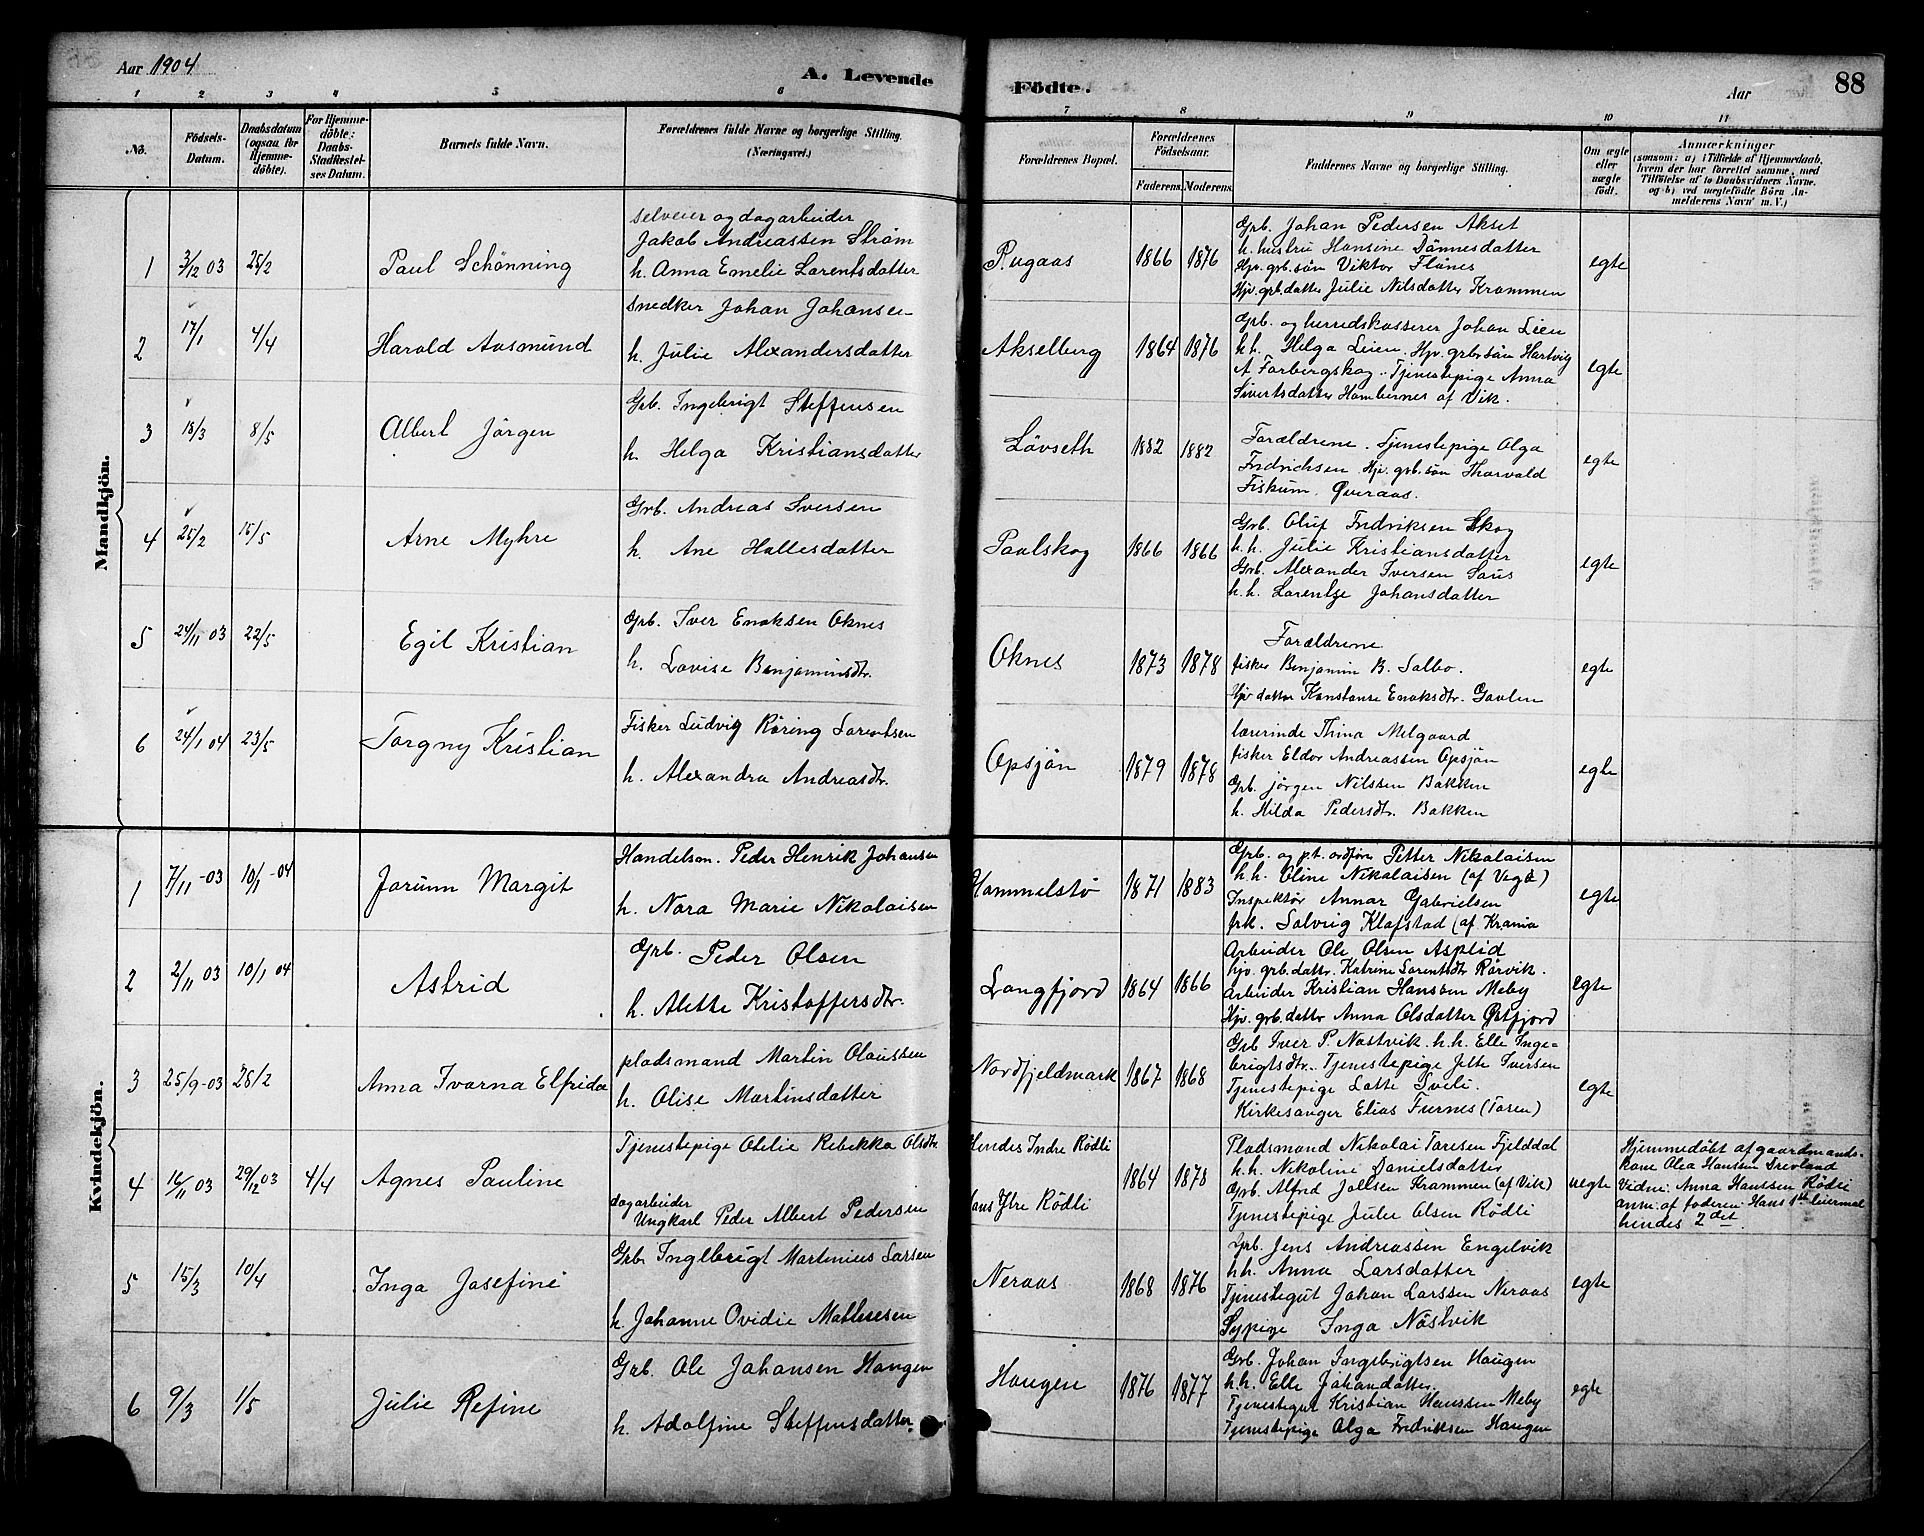 Aar 1904
A. Levende
Födte.
Aar
88
1 2 3 4 5 6 7 8 9 10 11
No.
Födsels-
Datum.
Daabsdatum
(ogsaa for
Hjemme-
döbte).
For Hjemme-
döbte:
Daabs-
Stadfæstel-
ses Datum.
Barnets fulde Navn.
Forældrenes fulde Navne og borgerlige Stilling.
(Næringsvei.)
Forældrenes Bopæl.
Forældrenes
Födselsaar.
Faderens. Moderens.
Faddernes Navne og borgerlige Stilling.
Om ægte
eller
uægte
født.
Anmærkninger
(saasom: a) i Tilfælde af Hjemmedaab,
hvem der har forrettet samme, med
Tilföielse af to Daabsvidners Navne,
og b) ved uægtefödte Börn An-
melderens Navn m. V.)
Mandkjön.
1 3/12 03 25/2 Paul Schönning
selveier og dagarbeider
Jakob Andreassen Ström
h. Anna Emelie Larentsdatter
Rugaas 1866 1876
Grb. Johan Pedersen Akset
h. hustru Hansine Dännesdatter
Hjv. grb. sön Viktor Flönes
Hjv. grb. datter Julie Nilsdatter Krammen
egte
2 17/1 4/4 Harald Aasmund
Snedker Johan Johansen
h. Julie Alexandersdatter
Akselberg 1864 1876
Grb. og herredskasserer Johan Lien
h. h. Helga Leien. Hjv. grb. sön Hartvig
A Forbergskog. Tjenestepige Anna
Sivertsdatter Hambernes af Vik.
egte
3 18/3 8/5 Albert Jörgen
Grb. Ingebrigt Steffensen
h. Helga Kristiansdatter
Lövseth 1882 1882
Forældrene. Tjenestepige Olga
Fredrichsen Hjv. grb. sön Thorvald
Fiskum. Overaas.
egte
4 25/2 15/5 Arne Myhre
Grb. Andreas Iversen
h. Ane Hallesdatter
Paalskog 1866 1866
Grb. Oluf Fredriksen Skog
h. h. Julie Kristiansdatter
Grb. Alexander Iversen Saus
h. h. Larentze Johansdatter
egte
5 24/11 03 22/5 Egil Kristian
Grb. Iver Enoksen Oknes
h. Lovise Benjaminsdtr.
Oknes 1873 1878
Forældrene
fisker Benjamin B. Salbo.
Hjv datter Konstanse Enoksdtr. Gaulen
egte
6 24/1 04 23/5 Torgny Kristian
Fisker Ludvig Röring Larentsen
h. Alexandra Andreasdtr.
Opsjön 1879 1878
lærerinde Thina Melgaard
fisker Eldor Andreassen Opsjön
Grb. Jörgen Nilssen Bakken
h. Hilda Pedersdtr. Bakken
egte
Kvindekjön.
1 7/11 -03 10/1 -04 Jorunn Margit
Handelsm. Peder Henrik Johansen
h. Nora Marie Nikolaisen
Hommelstö 1871 1883
Grb. og p.t. ordförer Petter Nikolaisen
h. h. Oline Nikolaisen (af Vega)
Inspektör Annar Gabrielsen
frk. Solveig Klafstad (af Krania
egte
2 2/11 03 10/1 04 Astrid
Grb. Peder Olsen
h. Alette Kristoffersdtr.
Langfjord 1864 1866
Arbeider Ole Olsen Asplid
hjv. grb. dattr. Katrine Larentsdtr Rörvik.
arbeider Kristian Hanssen Meby
Hjv. grb. datter Anna Olsdatter Østfjord
egte
3 25/9 -03 28/2 Anna Ivarna Elfrida
pladsmand Martin Olaussen
h. Olise Martinsdatter
Nordfjeldmark 1867 1868
Grb Iver P. Nästvik. h. h. Elle Inge=
brigtsdtr. Tjenestepige Jette Iversen
Tjenestepige Lotte Tveli.
Kirkesanger Elias Furnes (Toren)
egte
4 16/11 03 29/12 03 4/4 Agnes Pauline
Tjenestepige Otelie Rebekka Olsdtr
dagarbeider
Ungkarl Peder Albert Pedersen
Hendes Indre Rödli
Hans Ytre Rödli
1864 1878
Pladsmand Nikolai Taresen Fjelddal
h. h. Nikoline Danielsdatter
Grb. Alfred Joelsen Krammen (af Vik)
Tjenestepige Julie Olsen Rödli
uegte
Hjemmedöbt af gaardmands-
kone Olea Hanssen Drevland
Vidne: Anna Hanssen Rödli
anm. af faderen. Hans 1ste leiermal
hendes 2det.
5 15/3 10/4 Inga Josefine
Grb. Ingebrigt Martinius Larsen
h. Johanne Ovidie Mathisesen
Neraas 1868 1876
Grb. Jens Andreassen Engelvik
h.h. Anna Larsdatter
Tjenestegut Johan Larssen Neraas
Sypige Inga Nästvik
egte
6 9/3 1/5 Julie Refine
Grb. Ole Johansen Haugen
h. Adolfine Steffensdatter.
Haugen 1876 1877
Grb. Johan Ingebrigtsen Haugen
h. h. Elle Johansdatter
Tjenestegut Kristian Hanssen Meby
Tjenestepige Olga Fredriksen Haugen
egte